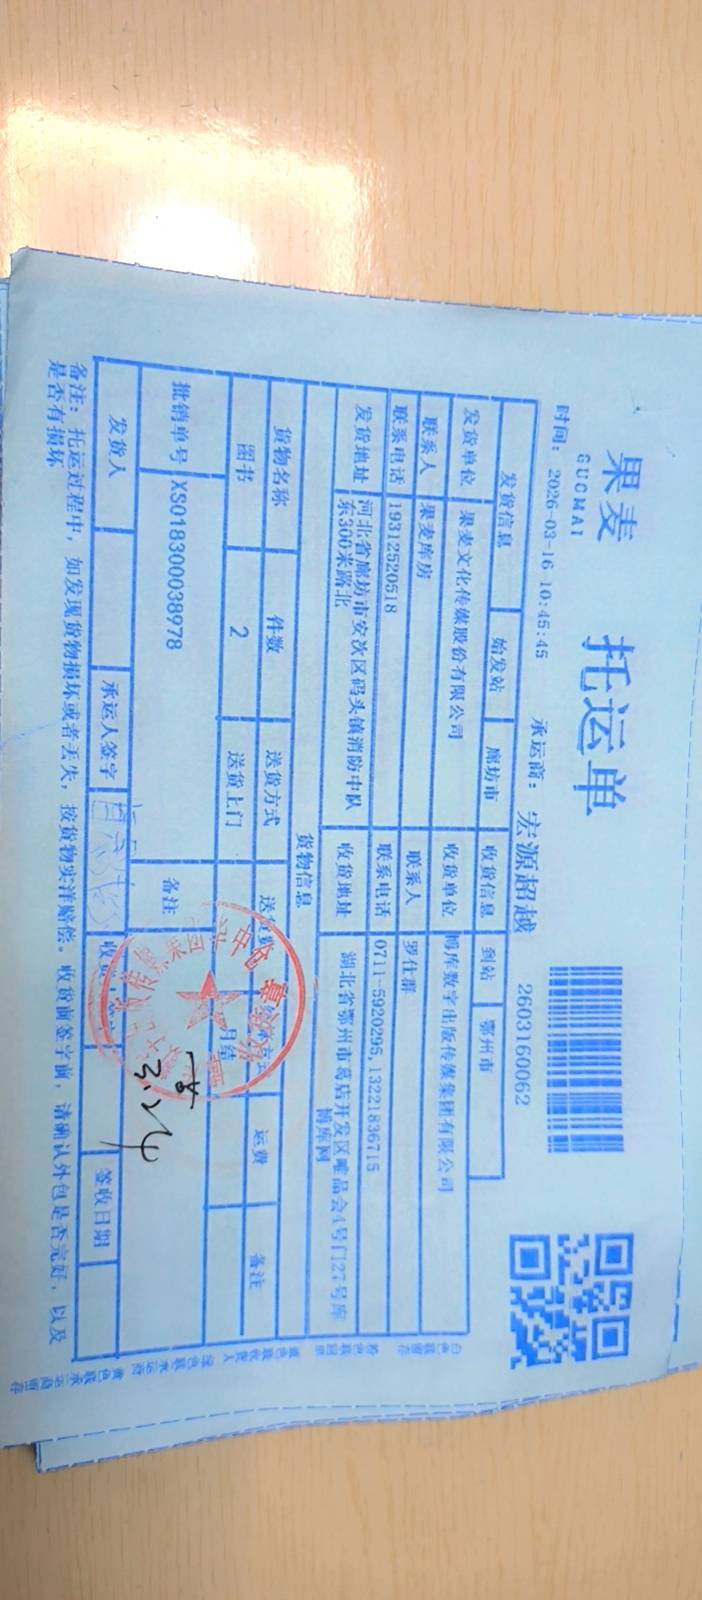 果麦
GUOMAI
托运单
时间: 2026-03-16 10:45:45 承运商: 宏源超越 2603160062
发货信息 始发站 廊坊市 收货信息 到站 鄂州市
发货单位 果麦文化传媒股份有限公司 收货单位 博库数字出版传媒集团有限公司
联系人 果麦库房 联系人 罗仕群
联系电话 19312520518 联系电话 0711-5920295,13221836715
发货地址 河北省廊坊市安次区码头镇消防中队东300米路北 收货地址 湖北省鄂州市葛店开发区唯品会4号门27号库博库网
货物信息
货物名称 件数 送货方式 运费 备注
图书 2 送货上门 月结
批销单号 XS018300038978 备注
3.24
发货人 承运人签字 签收日期
备注: 托运过程中, 如发现货物损坏或者丢失, 按货物实洋赔偿。收货前签字前, 请确认外包是否完好, 以及
是否有损坏